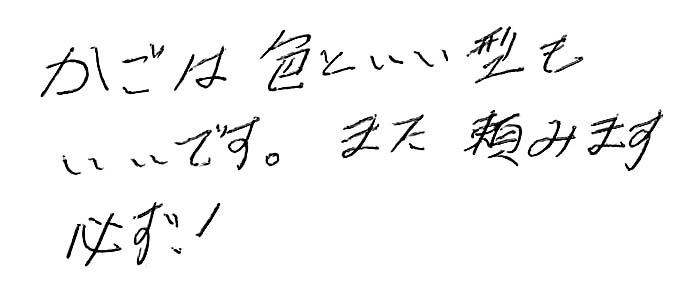 かごは色といい型も
いいです。また頼みます
必ず!